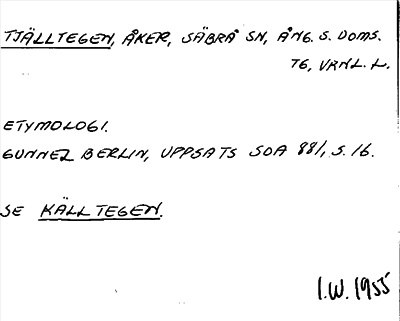 TJÄLLTEGEN, ÅKER, SÄBRÅ SN, ÅNG. S. DOMS.
76, VRNL. L.
ETYMOLOGI.
GUNNEL BERLIN, UPPSATS SOA 881, S. 16.
SE KÄLLTEGEN.
I.W. 1955